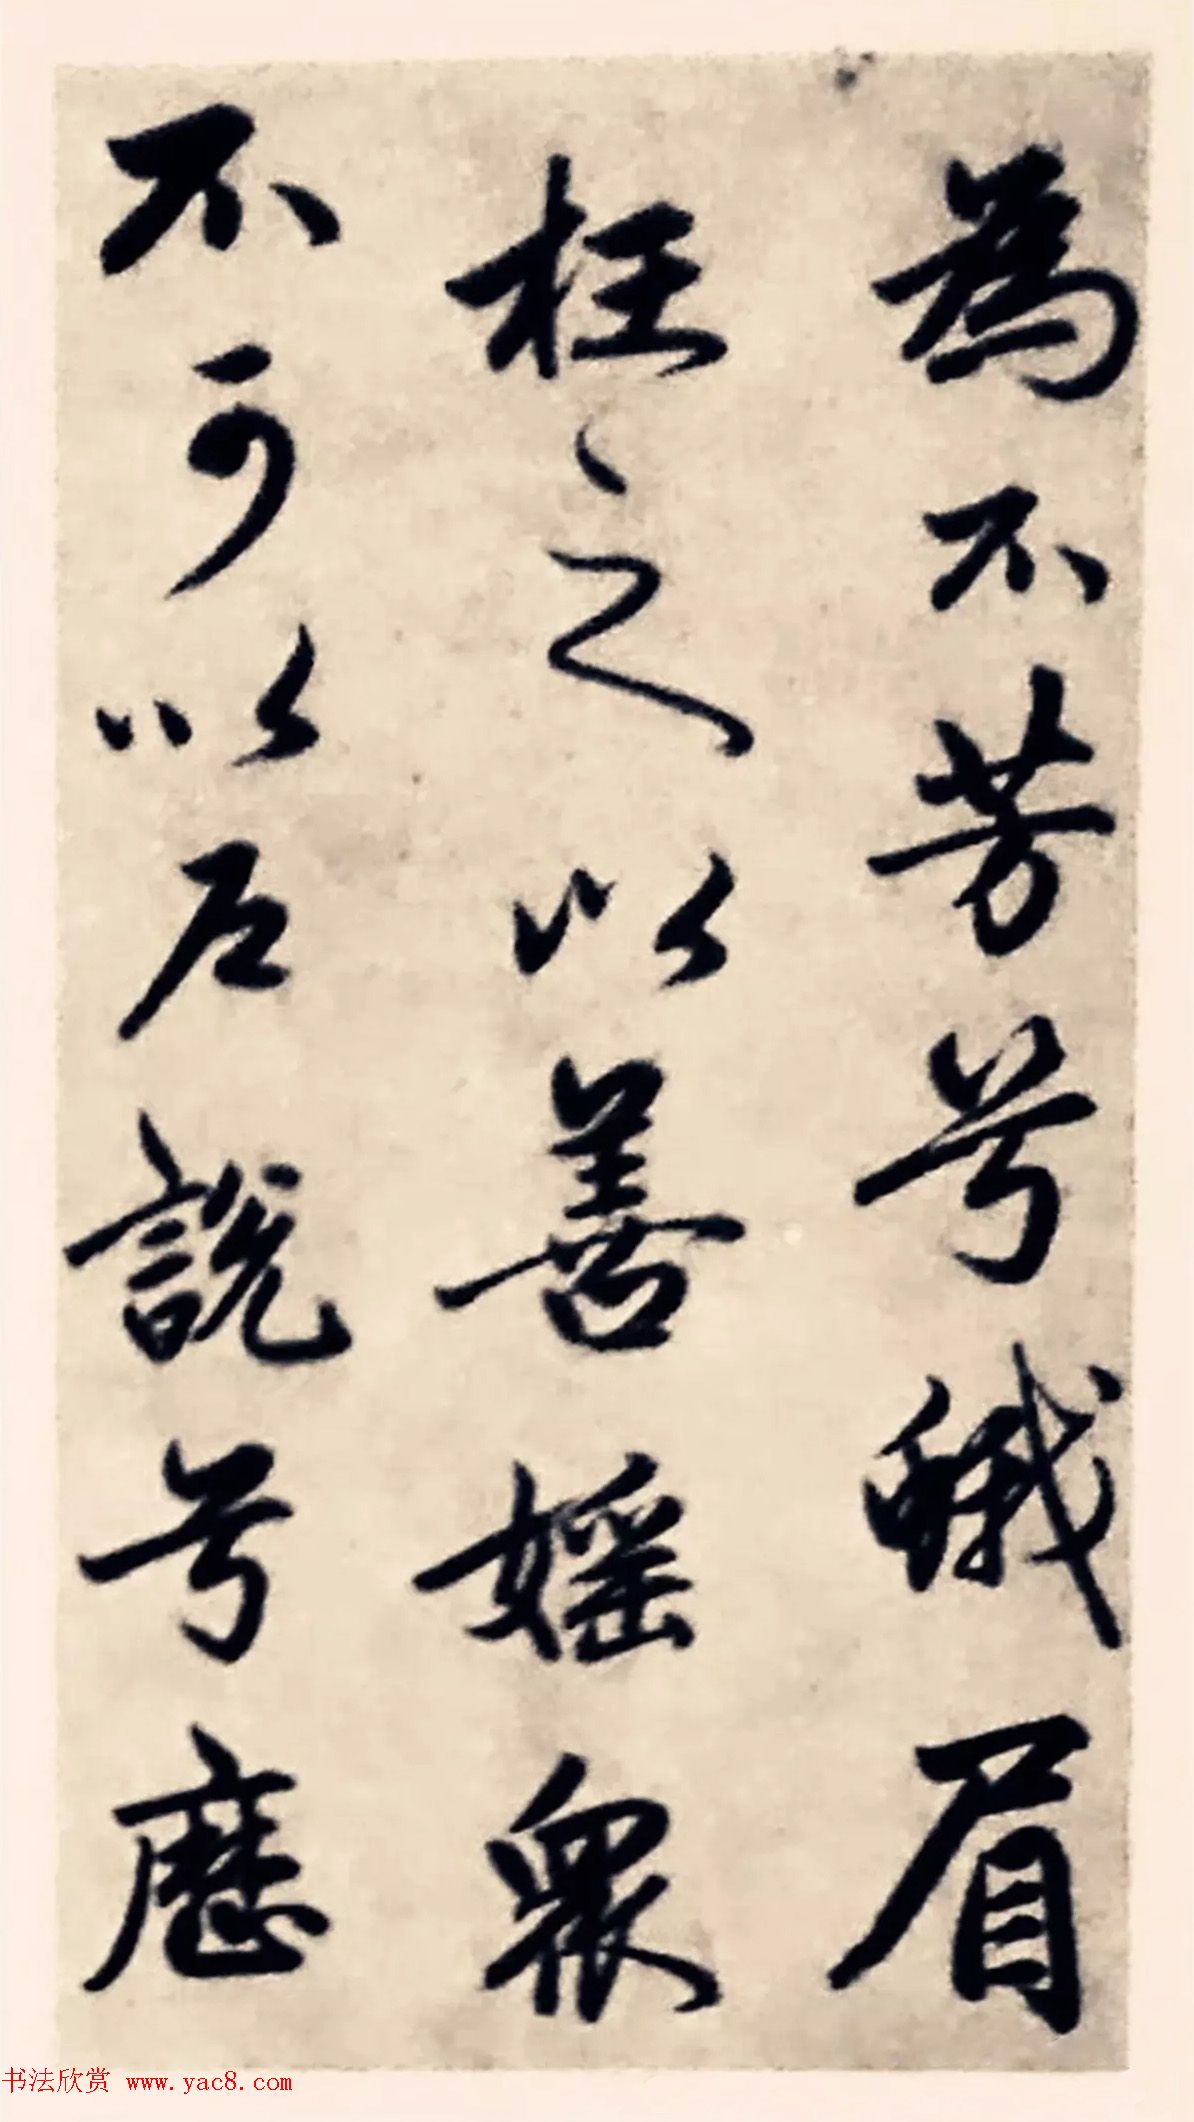 為不芳兮蛾眉
枉之以善媱眾
不可以戶說兮歷
书法欣赏 www.yac8.com